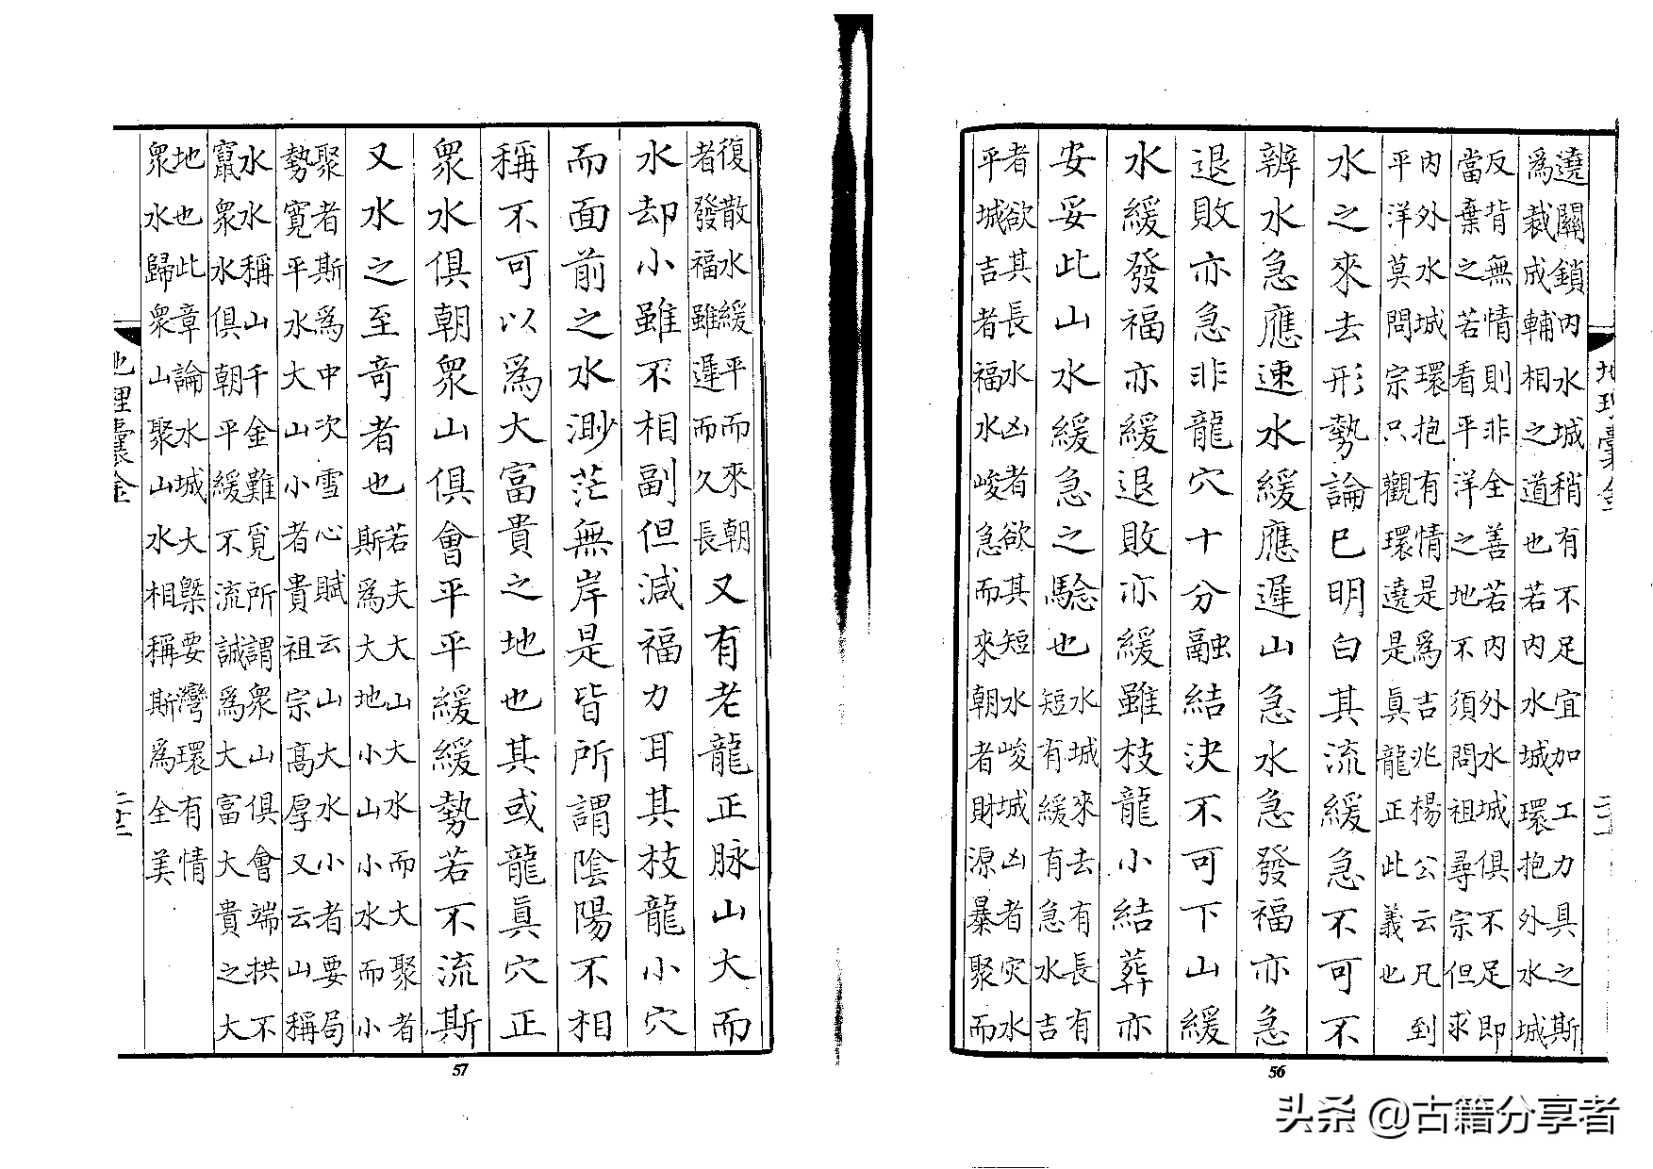 遶關鎖內水城稍有不足宜加工力具之斯
爲裁成輔相之道也若內水城環抱外水城
反背無情則非全善若內外水城俱不足即
當棄之若看平洋之地不須問祖尋宗但求
內外水城環抱有情是爲吉兆楊公云凡到
平洋莫問宗只觀環遶是眞龍正此義也
水之來去形勢論已明白其流緩急不可不
辨水急應速水緩應遲山急水急發福亦急
退敗亦急非龍穴十分融結決不可下山緩
水緩發福亦緩退敗亦緩雖枝龍小結葬亦
安妥此山水緩急之驗也
水城來去有長有
短有緩有急水吉
者欲其長水凶者欲其短水峻城凶者灾水
平城吉者福水峻急而來朝者財源暴聚而
復散水緩平而來朝
者發福雖遲而久長
又有老龍正脉山大而
水却小雖不相副但減福力耳其枝龍小穴
而面前之水渺茫無岸是皆所謂陰陽不相
稱不可以爲大富貴之地也其或龍眞穴正
衆水俱朝衆山俱會平平緩緩勢若不流斯
又水之至奇者也
若夫大山大水而大聚者
斯爲大地小山小水而小
聚者斯爲中次雪心賦云山大水小者要局
勢寬平水大山小者貴祖宗高厚又云山稱
水水稱山千金難覓所謂衆山俱會端拱不
竄衆水俱朝平緩不流誠爲大富大貴之大
地也此章論水城大槩要灣環有情
衆水歸衆山聚山水相稱斯爲全美
地理囊金
57
地理囊金
56
头条 @古籍分享者